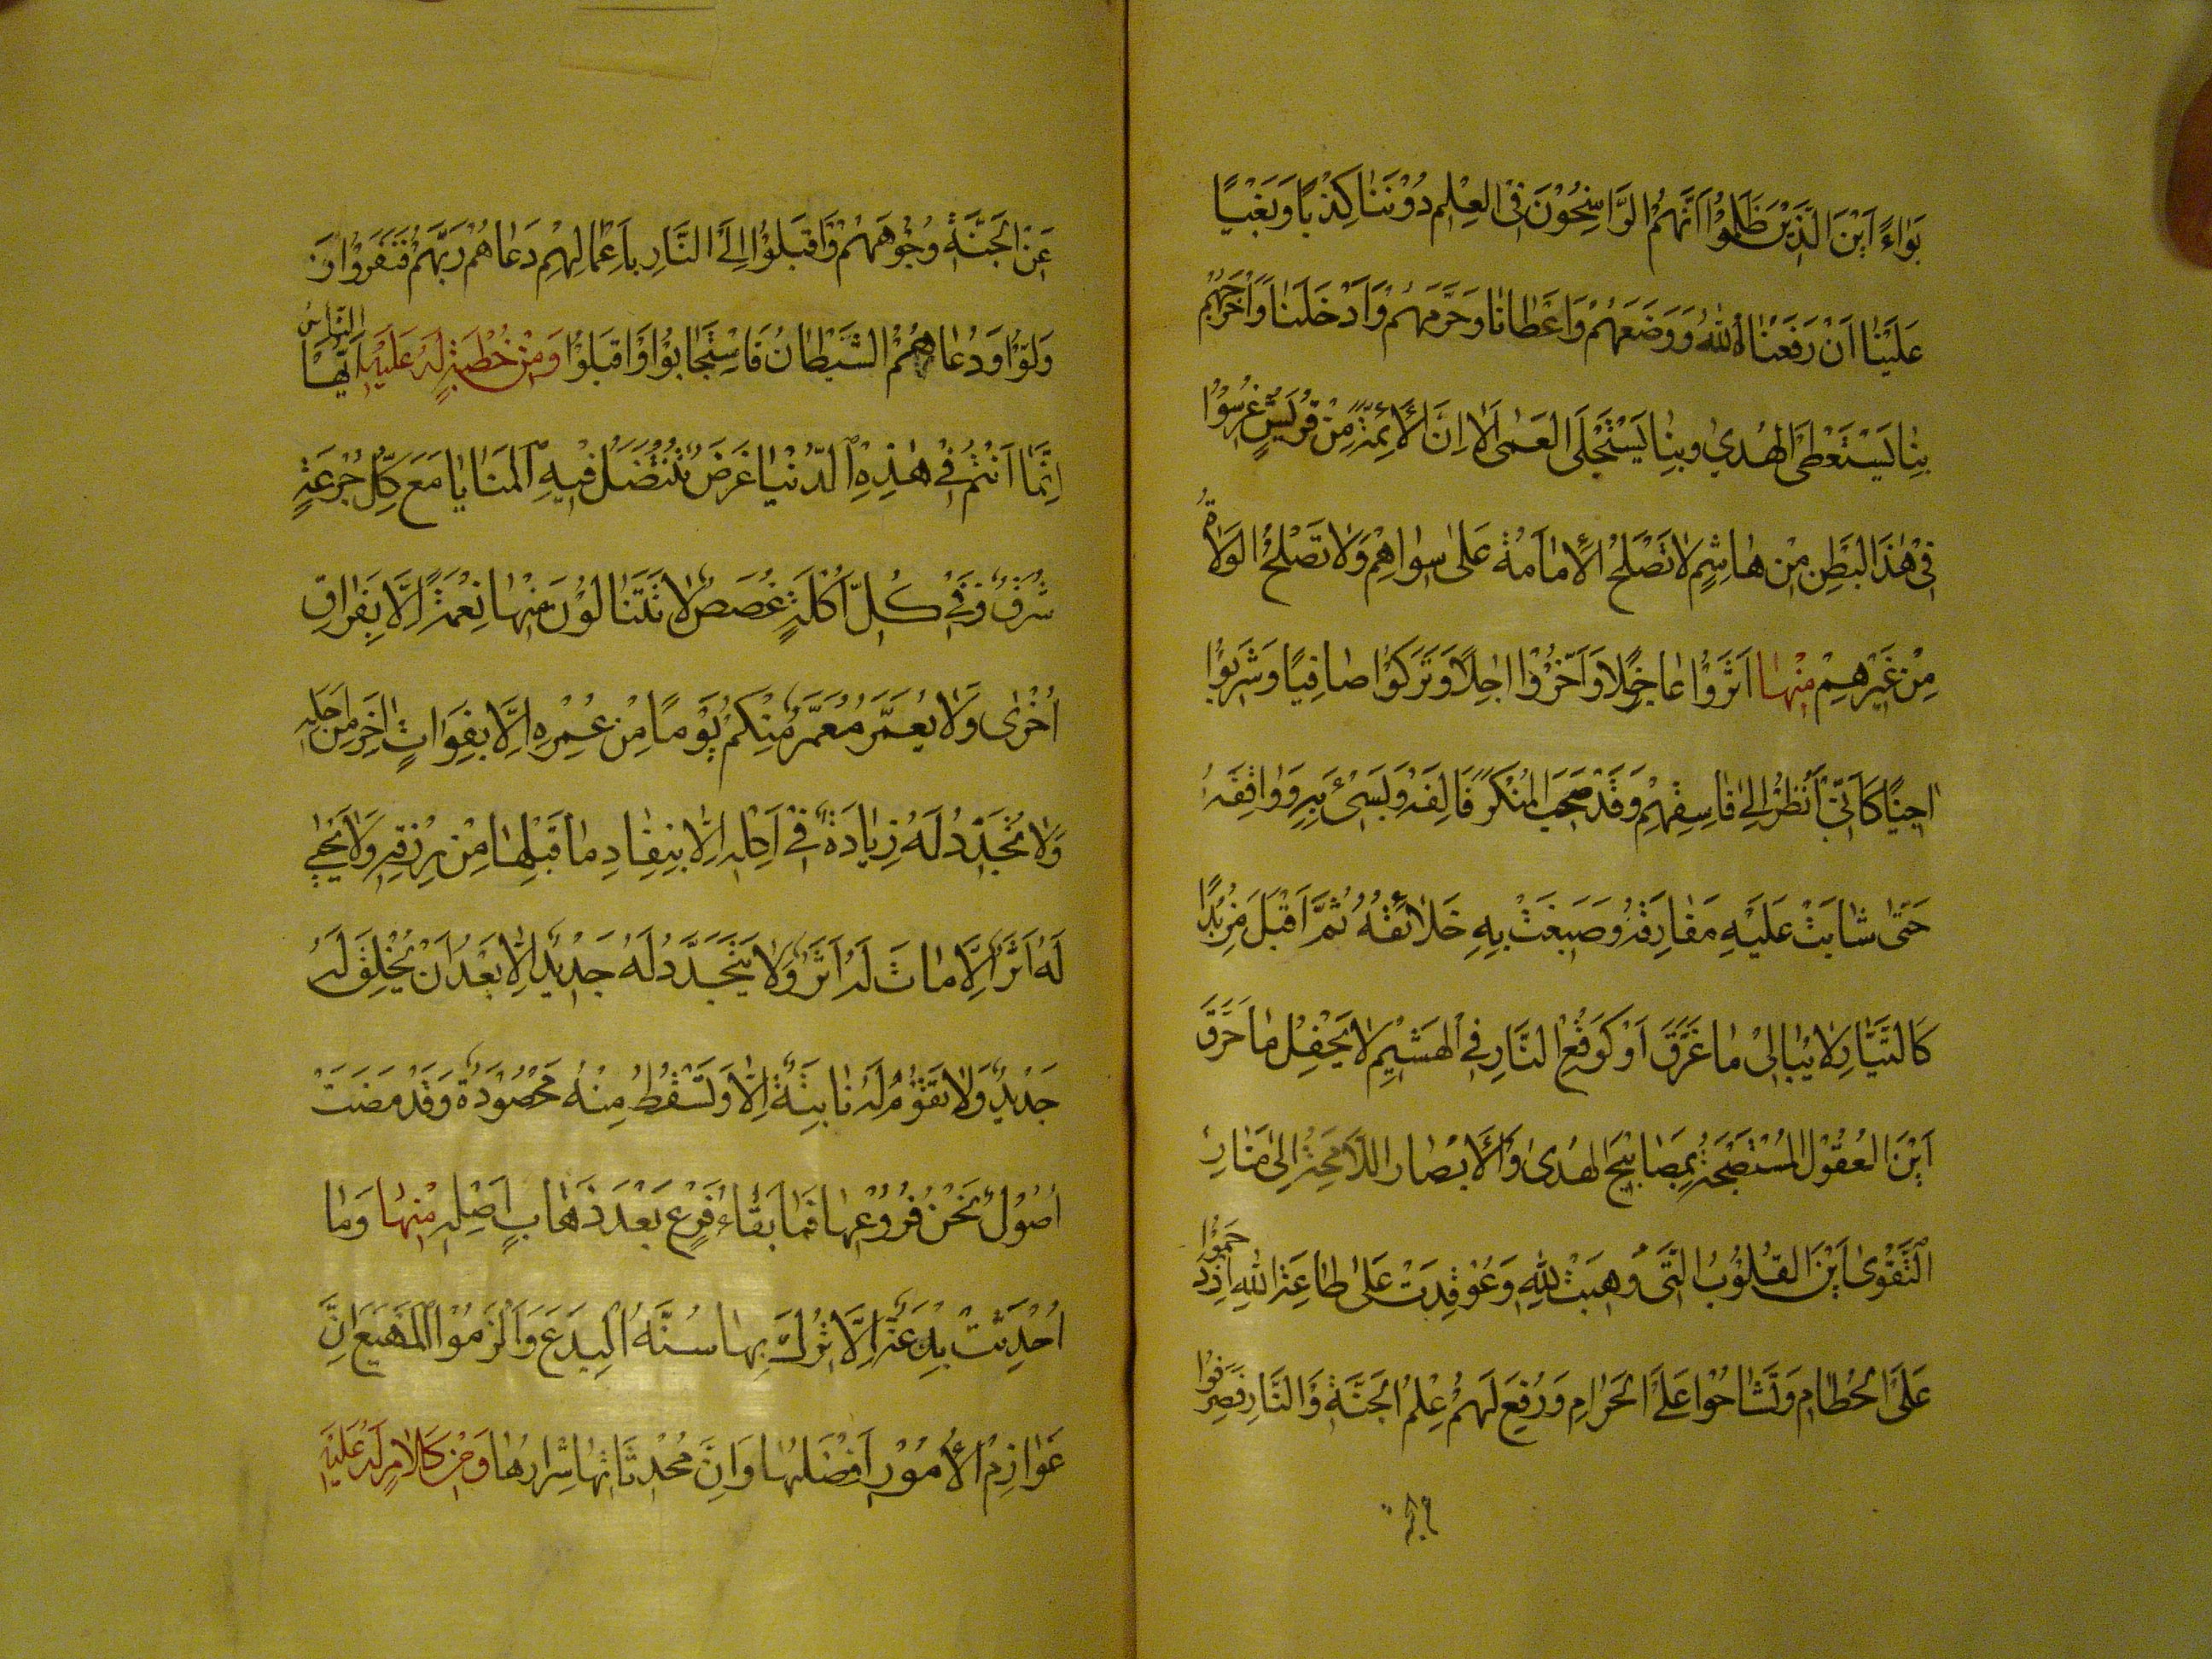 بَوَاءً اَيْنَ الَّذِيْنَ ظَلَمُوْا اَنَّهُمُ الرَّاسِخُوْنَ فِى الْعِلْمِ دُوْنَنَا كِذْبًا وَبَغْيًا
عَلَيْنَا اَنْ رَفَعَنَا اللّٰهُ وَوَضَعَهُمْ وَاَعْطَانَا وَحَرَّمَهُمْ وَاَدْخَلَنَا وَاَخْرَجَهُمْ
بِنَا يَسْتَعْطَى الْهُدٰي وبِنَا يَسْتَجْلَى الْعَمٰى اَلَا اِنَّ الْاَئِمَّةَ مِنْ قُرَيْشٍ غُرِسُوْا
فِىْ هٰذَا الْبَطْنِ مِنْ هَاشِمٍ لَا تَصْلَحُ الْاِمَامَةُ عَلٰى سِوَاهُمْ وَلَا تَصْلَحُ الْوَلَاةُ
مِنْ غَيْرِهِمْ مِنْهَا اٰثَرُوْا عَاجِلًا وَاَخَّرُوْا اٰجِلًا وَتَرَكُوْا صَافِيًا وَشَرِبُوْا
اٰجِنًا كَاَنِّىْ اَنْظُرُ اِلٰى فَاسِقِهِمْ وَقَدْ صَحِبَ الْمُنْكَرَ فَاَلِفَهُ وَبَسِئَ بِهِ وَوَافَقَهُ
حَتّٰى شَابَتْ عَلَيْهِ مَفَارِقُهُ وَصُبِغَتْ بِهِ خَلَائِقُهُ ثُمَّ اَقْبَلَ مُزْبِدًا
كَالتَّيَّارِ لَا يُبَالِىْ مَا غَرَّقَ اَوْ كَوَقْعِ النَّارِ فِى الْهَشِيْمِ لَا يَحْفِلُ مَا حَرَّقَ
اَيْنَ الْعُقُوْلُ الْمُسْتَصْبِحَةُ بِمَصَابِيْحِ الْهُدٰى وَالْاَبْصَارُ اللَّامِحَةُ اِلٰى مَنَارِ
التَّقْوٰى اَيْنَ الْقُلُوْبُ الَّتِى وُهِبَتْ لِلّٰهِ وَعُوْقِدَتْ عَلٰى طَاعَةِ اللّٰهِ اِزْدَحَمُوْا
عَلَى الْحُطَامِ وَتَشَاحُوْا عَلَى الْحَرَامِ وَرُفِعَ لَهُمْ عِلْمُ الْجَنَّةِ وَالنَّارِ فَصَرَفُوْا
عَنِ الْجَنَّةِ وُجُوْهَهُمْ وَاَقْبَلُوْا اِلَى النَّارِ بِاَعْمَالِهِمْ دَعَاهُمْ رَبُّهُمْ فَنَفَرُوْا وَ
وَلَّوْا وَدَعَاهُمُ الشَّيْطَانُ فَاسْتَجَابُوْا وَاَقْبَلُوْا وَمِنْ خُطْبَةٍ لَهُ عَلَيْهِ اَيُّهَا النَّاسُ
اِنَّمَا اَنْتُمْ فِىْ هٰذِهِ الدُّنْيَا غَرَضٌ تَنْتَضِلُ فِيْهِ الْمَنَايَا مَعَ كُلِّ جُرْعَةٍ
شَرَقٌ وَفِىْ كُلِّ اَكْلَةٍ غُصَصٌ لَا تَتَنَالُوْنَ مِنْهَا نِعْمَةً اِلَّا بِفِرَاقِ
اُخْرٰى وَلَا يُعَمَّرُ مُعَمَّرٌ مِنْكُمْ يَوْمًا مِنْ عُمْرِهِ اِلَّا بِفَوَاتِ اٰخَرَ مِنْ اَجَلِهِ
وَلَا تُجَدَّدُ لَهُ زِيَادَةٌ فِىْ اَكْلِهِ اِلَّا بِنَفَادِ مَا قَبْلَهَا مِنْ رِزْقِهِ وَلَا يَحْيٰى
لَهُ اَثَرٌ اِلَّا مَاتَ لَهُ اَثَرٌ وَلَا يَتَجَدَّدُ لَهُ جَدِيْدٌ اِلَّا بَعْدَ اَنْ يُخْلِقَ لَهُ
جَدِيْدٌ وَلَا تَقُوْمُ لَهُ نَابِتَةٌ اِلَّا وَتَسْقُطُ مِنْهُ مَحْصُوْدَةٌ وَقَدْ مَضَتْ
اُصُوْلٌ نَحْنُ فُرُوْعُهَا فَمَا بَقَاءُ فَرْعٍ بَعْدَ ذَهَابِ اَصْلِهِ مِنْهَا وَمَا
اُحْدِثَتْ بِدْعَةٌ اِلَّا تُرِكَ بِهَا سُنَّة الْبِدَعَ وَالْزَمُوْا الْمَهْيَعَ اِنَّ
عَوَازِمَ الْاُمُوْرِ اَفْضَلُهَا وَاِنَّ مُحْدَثَاتِهَا شِرَارُهَا وَمِنْ كَلَامٍ لَهُ عَلَيْهِ